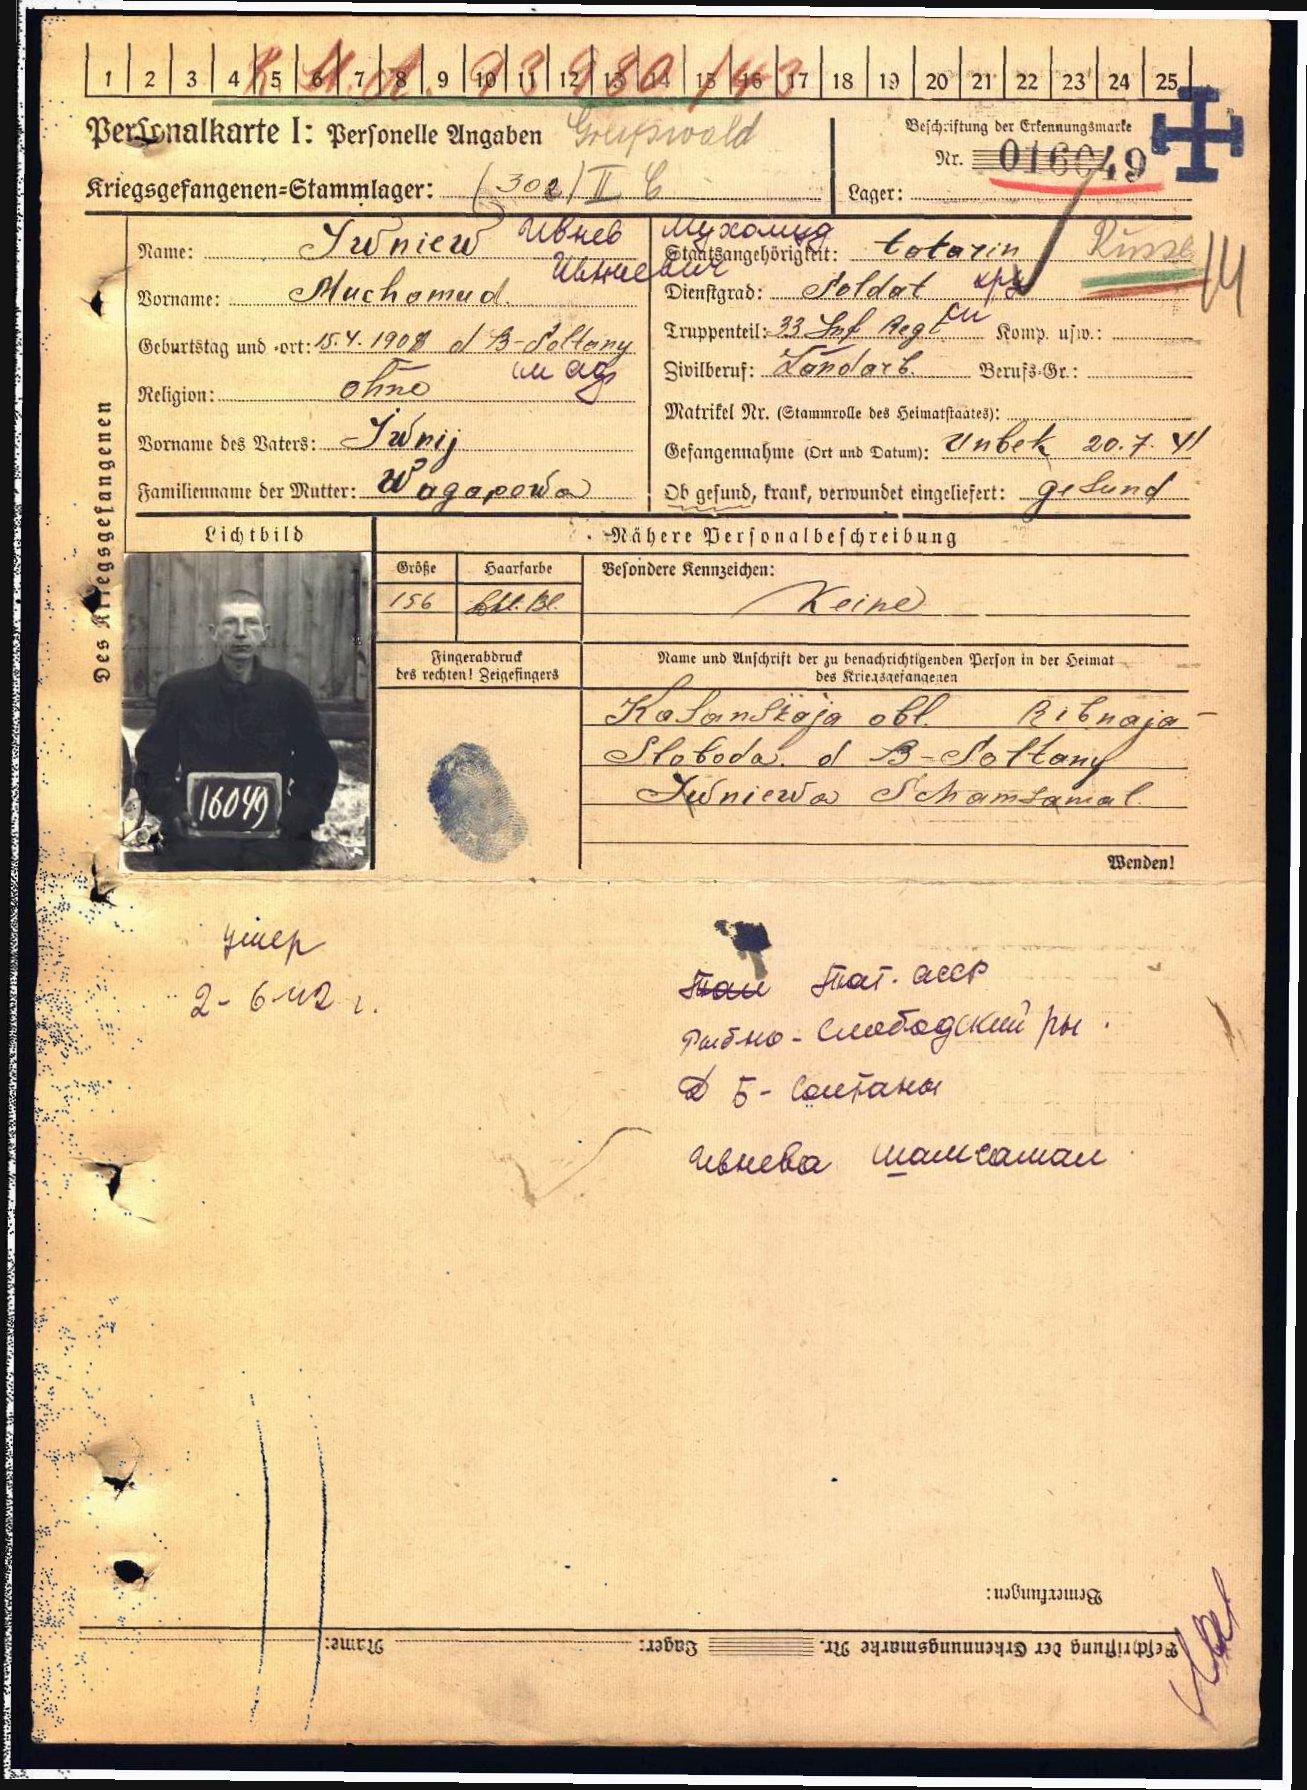 1 2 3 4 5 6 7 8 9 10 11 12 13 14 15 16 17 18 19 20 21 22 23 24 25
Personalkarte I: Personelle Angaben Greifswald
Beschriftung der Erkennungsmarke
Nr. 016049
Kriegsgefangenen-Stammlager: (302) II C
Lager:
Des Kriegsgefangenen
Name: Iwniew Ивнев Мухамуд
Ивниевич
Vorname: Muchamud.
Geburtstag und -ort: 15.4.1908 d B-Soltany
Religion: ohne
Vorname des Vaters: Iwnij
Familienname der Mutter: Wagapowa
Staatsangehörigkeit: tatarin Russe
14
Dienstgrad: Soldat
Truppenteil: 33 Inf Regt Komp. usw.:
Zivilberuf: Landarb. Berufs-Gr.:
Matrikel Nr. (Stammrolle des Heimatstaates):
Gefangennahme (Ort und Datum): Unbek 20.7.41
Ob gesund, krank, verwundet eingeliefert: gesund
Lichtbild
Nähere Personalbeschreibung
Größe Haarfarbe Besondere Kennzeichen:
156 Bl. Keine
Fingerabdruck
des rechten! Zeigefingers
Name und Anschrift der zu benachrichtigenden Person in der Heimat
des Kriegsgefangenen
Kasanskaja obl. Ribnaja-
Sloboda. d B-Soltany
Iwniewa Schamsamal.
16049
Wenden!
умер
2-6-42 г.
Тат. АССР
Рыбно-Слободский рн.
Д Б-Солтаны
Ивнева Шамсамал
Bemerkungen:
Beschriftung der Erkennungsmarke Nr. Lager: Name: